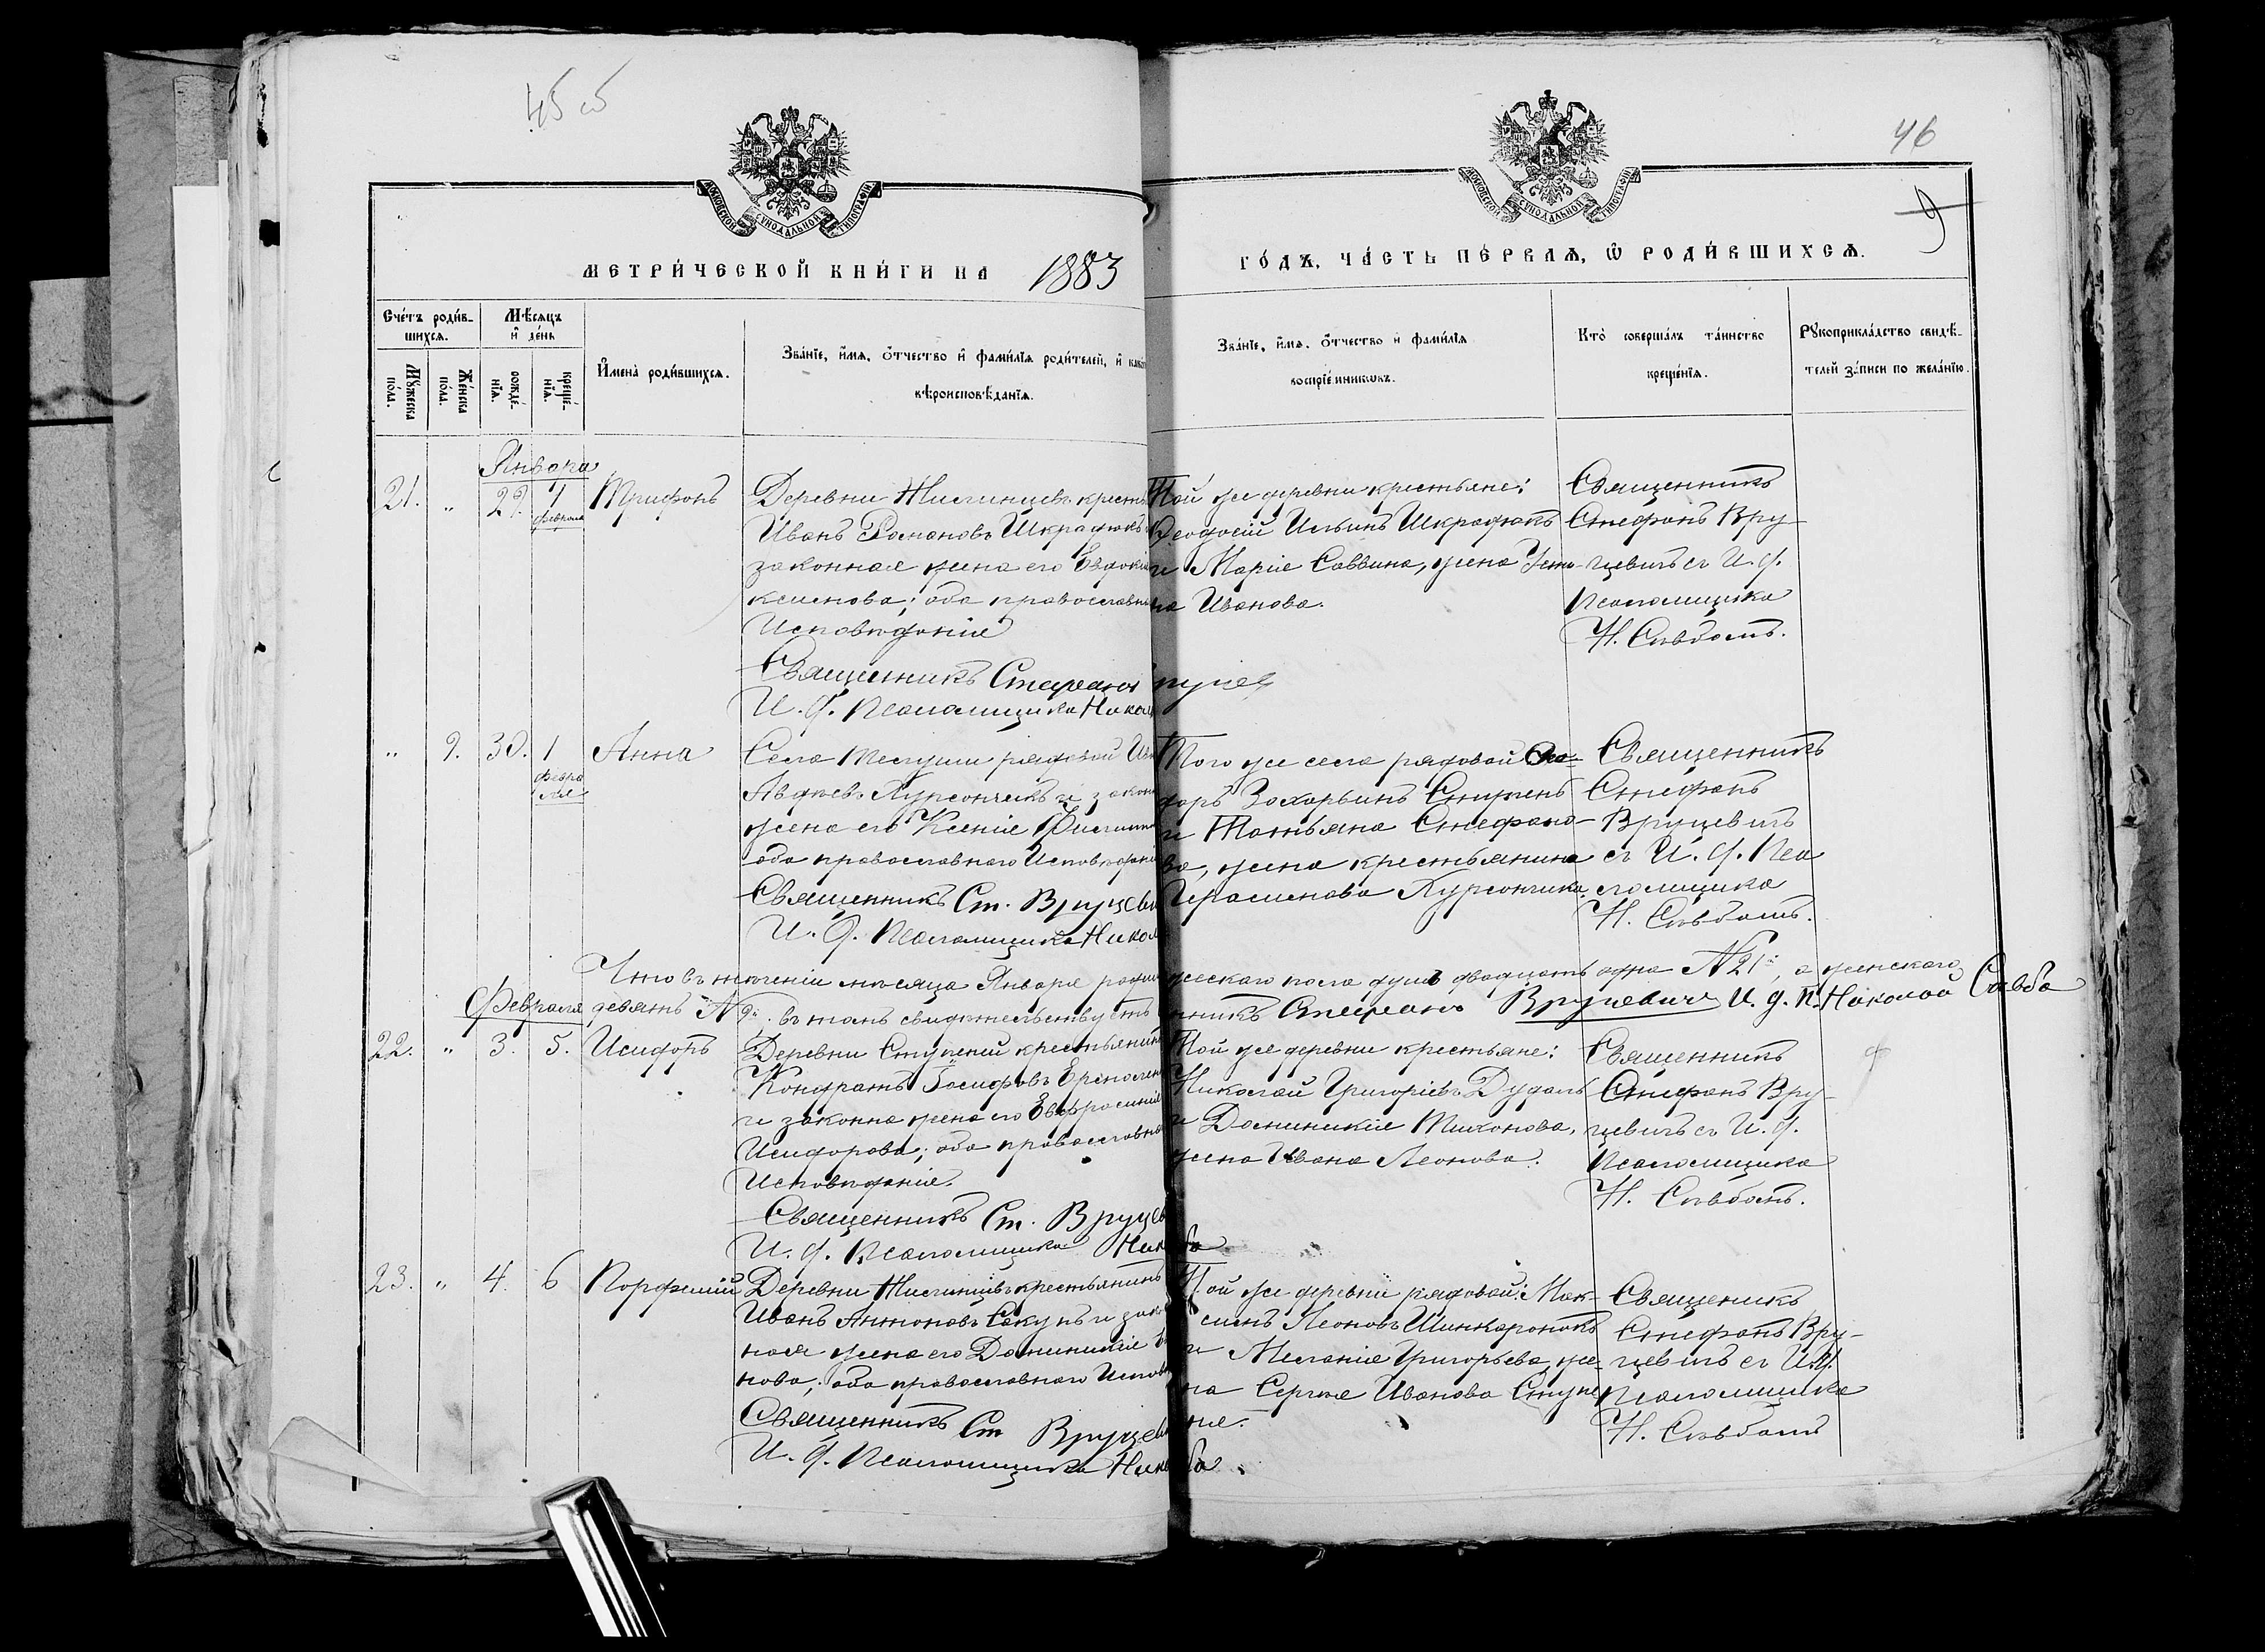 45 об
46
9
МОСКОВСКОЙ СѴНОДАЛЬНОЙ ТИПОГРАФІИ
МОСКОВСКОЙ СѴНОДАЛЬНОЙ ТИПОГРАФІИ
МЕТРИ́ЧЕСКОЙ КНИ́ГИ НА 1883
ГО́ДЪ, ЧА́СТЬ ПЕ́РВАѦ, Ѡ҆ РОДИ́ВШИХСѦ.
Сче́тъ роди́в-
шихсѧ.
Мѣ́сѧцъ
и҆ де́нь
Мꙋ́жеска
по́ла.
Же́нска
по́ла.
рожде́-
нїѧ.
креще́-
нїѧ.
И҆мена̀ роди́вшихсѧ.
Зва́нїе, и҆́мѧ, ѻ҆́тчество и҆ фами́лїѧ роди́телей, и҆
вѣроисповѣ́данїѧ.
Зва́нїе, и҆́мѧ, ѻ҆́тчество и҆ фами́лїѧ
воспрїе́мникѡвъ.
Кто̀ соверша́лъ та́инство
креще́нїѧ.
Рꙋкоприкла́дство свидѣ́-
телей за́писи по жела́нїю.
Января
21. " 29. 1 Февраля Трифонъ
Деревни Жилинцевъ крестья
Иванъ Романовъ Шкрадюкъ
законная жена его Евдокія
ксимова; оба православна
Исповѣданія
Священникъ Стефанъ
И. д. Псаломщика Никол
Той же деревни крестьяне:
Ѳеодосій Ильинъ Шкрадюкъ
и Марія Саввина, жена
Иванова.
Священникъ
Стефанъ Вру-
цевичъ съ И. д.
Псаломщика
Н. Саввомъ.
" 9. 30. 1 Февраля Анна
Села рядовой Ив
Авдѣевъ Хурсончикъ и закон
жена его Ксенія Филип
оба православнаго Исповѣдані
Священникъ Ст. Вруцеви
И. д. Псаломщика Никол
Того же села рядовой
доръ Захарьинъ Ступень
и Татьяна Стефано-
ва, жена крестьянина
Герасимова Хурсончика.
Священникъ
Стефанъ
Вруцевичъ
съ И. д. Пса
ломщика
Н. Саввомъ.
Что въ теченіи мѣсяца Января роди жескаго пола душъ двадцать одна №21й, а женскаго
девять №9й. въ томъ свидѣтельствуетъ нникъ Стефанъ Вруцевичъ И. д. П. Николай Савва
Февраля
22. " 3. 5. Исидоръ
Деревни Ступеней крестьянинъ
Кондратъ Іосифовъ
и законна жена его Евфросинія
Исидорова; оба православна
Исповѣданія.
Священникъ Ст. Вруцев
И. д. Псаломщика Ник ва
Той же деревни крестьяне:
Николай Григоріевъ Дудалъ
и Доминикія Тихонова,
жена Ивана Леонова.
Священникъ
Стефанъ Вру-
цевичъ съ И. д.
Псаломщика
Н. Саввомъ.
23. " 4. 6 Порфирій
Деревни Жилинцевъ крестьянинъ
Иванъ Антоновъ Сакунъ и зако
ная жена его Доминикія
нова; оба православнаго Испов
Священникъ Ст Вруцеви
И. д. Псаломщика Ник ва
Той же деревни рядовой: Мак-
симъ Леоновъ Шинкаронокъ
и Меланія Григорьева, же-
на Сергея Иванова Ступе
ня.
Священикъ
Стефанъ Вру-
цевичъ съ И.д.
Псаломщика
Н. Саввомъ